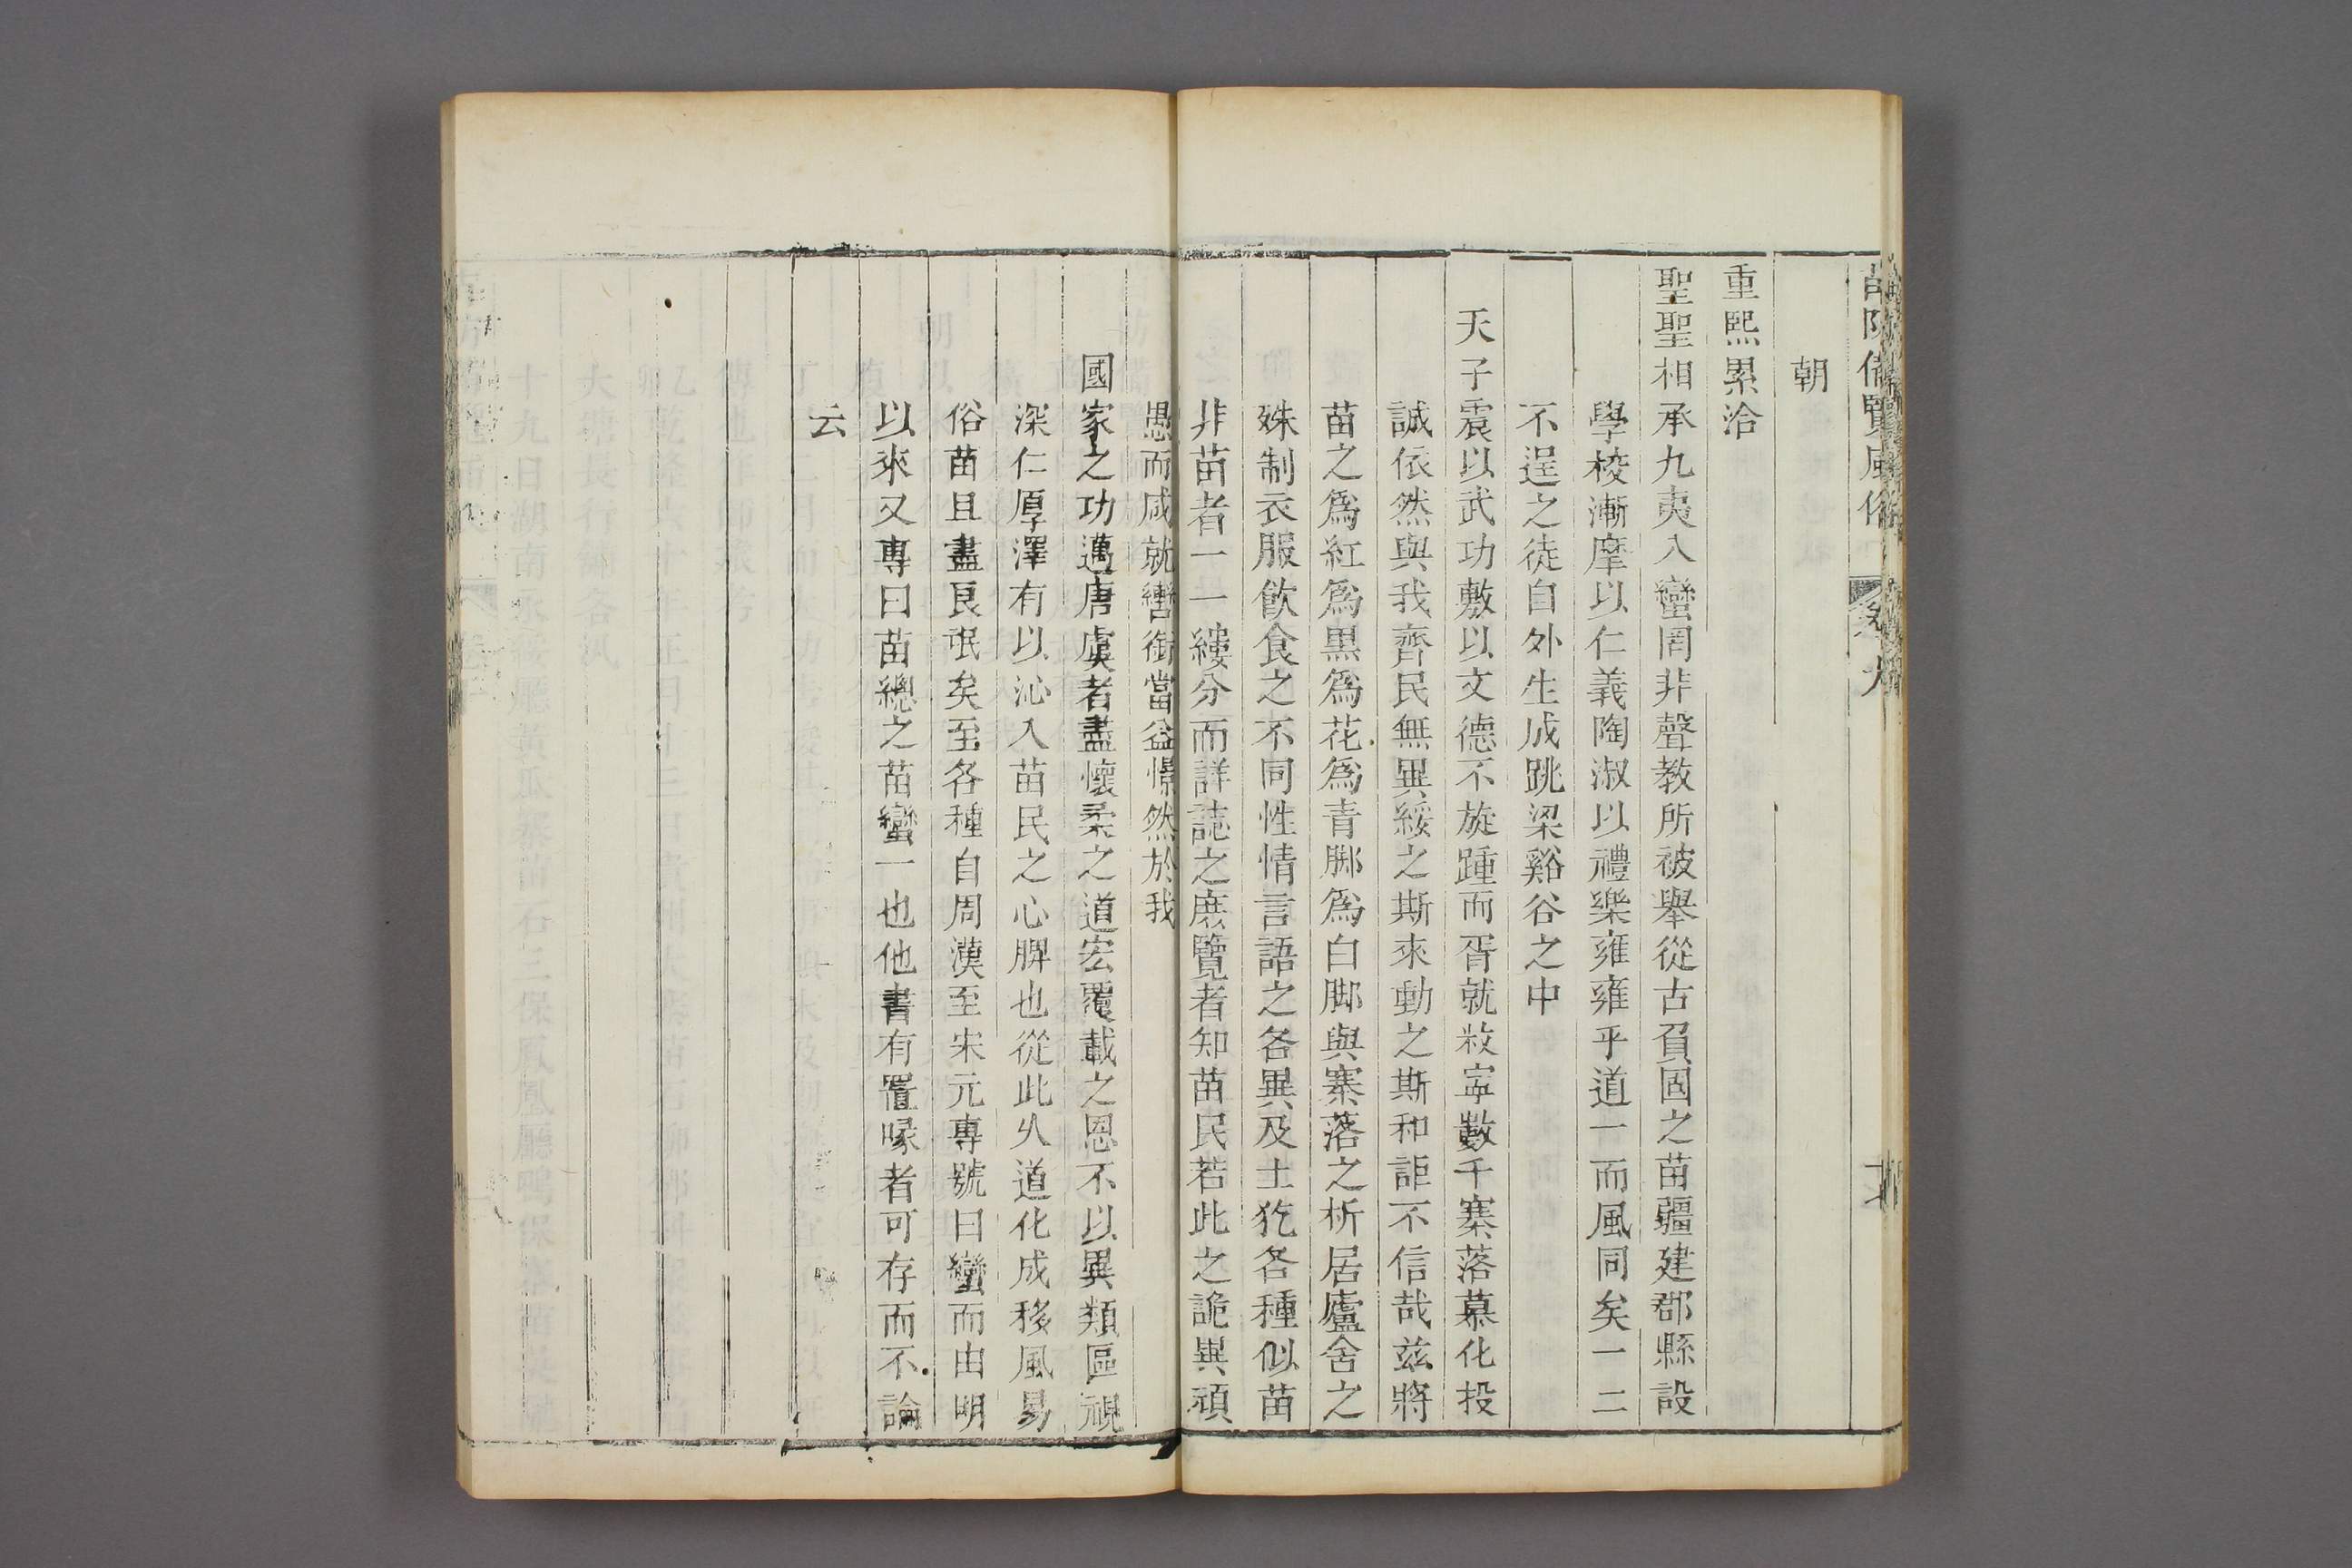 苗防備覽風俗 卷九
朝
重熙累洽
聖聖相承九夷入蠻罔非聲教所被舉從古負固之苗疆建郡縣設
學校漸摩以仁義陶淑以禮樂雍雍乎道一而風同矣一二
不逞之徒自外生成跳梁谿谷之中
天子震以武功敷以文德不旋踵而胥就敉寧數千寨落慕化投
誠依然與我齊民無異綏之斯來動之斯和詎不信哉茲將
苗之爲紅爲黑爲花爲青脚爲白脚與寨落之析居廬舍之
殊制衣服飲食之不同性情言語之各異及土犵各種似苗
非苗者一一縷分而詳誌之庶覽者知苗民若此之詭異頑
愚而咸就轡銜當益憬然於我
國家之功邁唐虞者盡懷柔之道宏覆載之恩不以異類區視
深仁厚澤有以沁入苗民之心脾也從此久道化成移風易
俗苗且盡良氓矣至各種自周漢至宋元專號曰蠻而由明
以來又專曰苗總之苗蠻一也他書有置喙者可存而不論
云